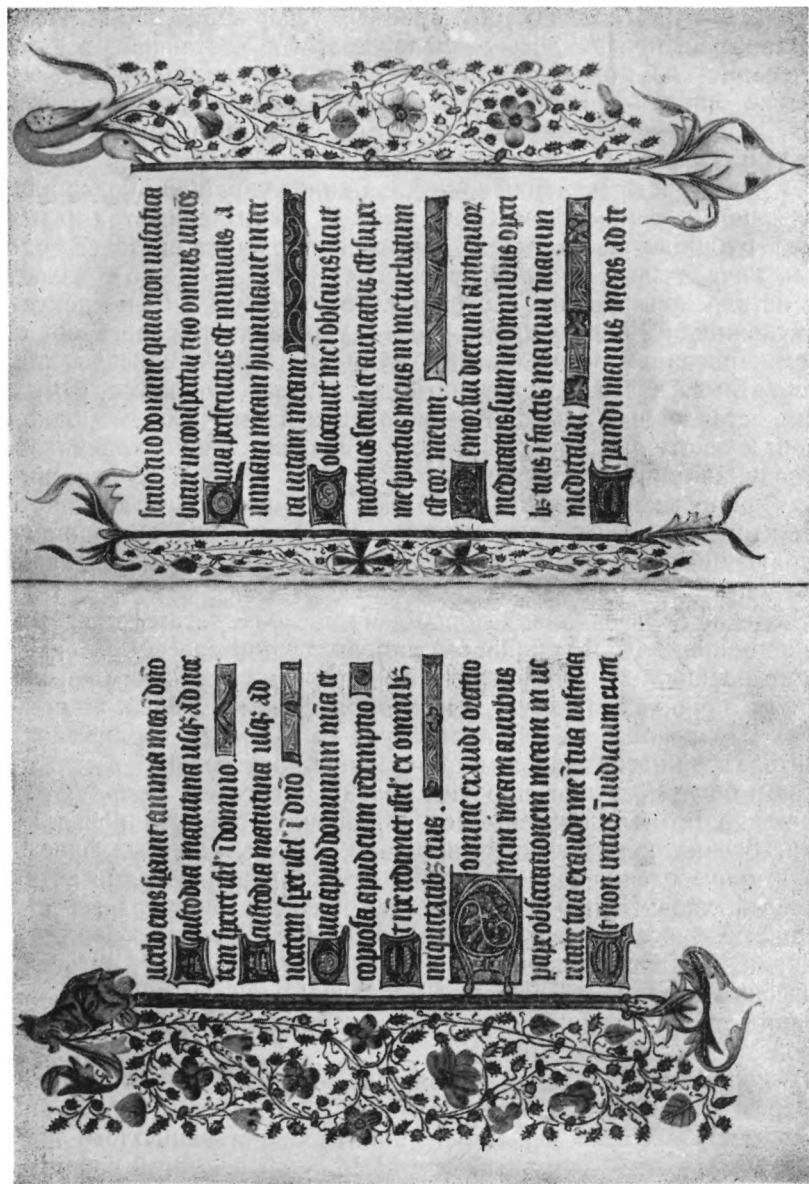 uerbo eius sperauit anima mea ī dño
A custodia matutina usq; ad noc
tem speret isrl' ī domino.
A custodia matutina usq; ad
noctem speret isrl' ī dño
Quia apud dominum mīa et
copiosa apud eum redemptio
Et ipē redimet isrl' ex omnib;
iniquitatib; eius.
Domine exaudi oratio
nem meam auribus
percipe obsecrationem meam in ue
ritate tua exaudi me ī tua iusticia
Et non intres ī iudicium cum
seruo tuo domine quia non iustifica
bitur in conspectu tuo omnis uiuens
Quia persecutus est inimicus a
nimam meam humiliauit in ter
ra uitam meam
Collocauit me ī obscuris sicut
mortuos seculi et anxiatus est super
me spiritus meus in me turbatum
est cor meum
Memor fui dierum antiquoꝝ
meditatus sum in omnibus operi
bus tuis ī factis manuū tuarum
meditabar
Expandi manus meas ad te